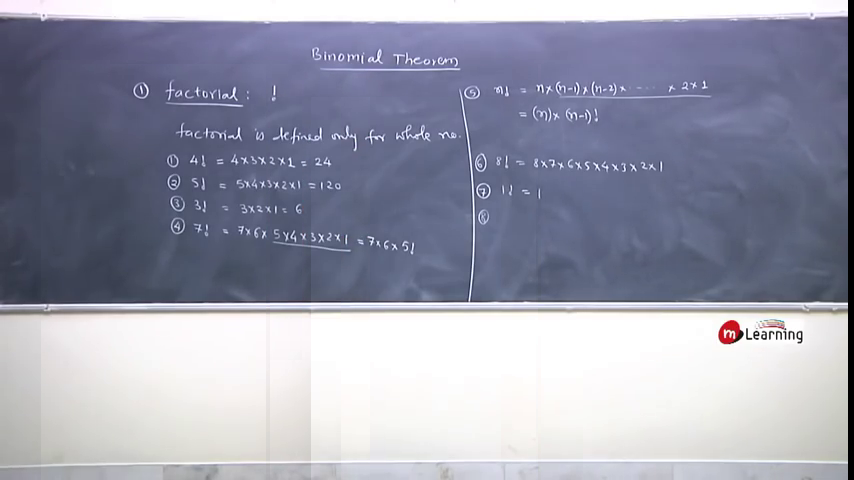 Binomial Theorem
① factorial : !
factorial is defined only for whole no.
① 4! = 4×3×2×1 = 24
② 5! = 5×4×3×2×1 = 120
③ 3! = 3×2×1 = 6
④ 7! = 7×6×5×4×3×2×1 = 7×6×5!
⑤ n! = n×(n-1)×(n-2)×----- × 2×1
= (n)×(n-1)!
⑥ 8! = 8×7×6×5×4×3×2×1
⑦ 1! = 1
⑧
m Learning